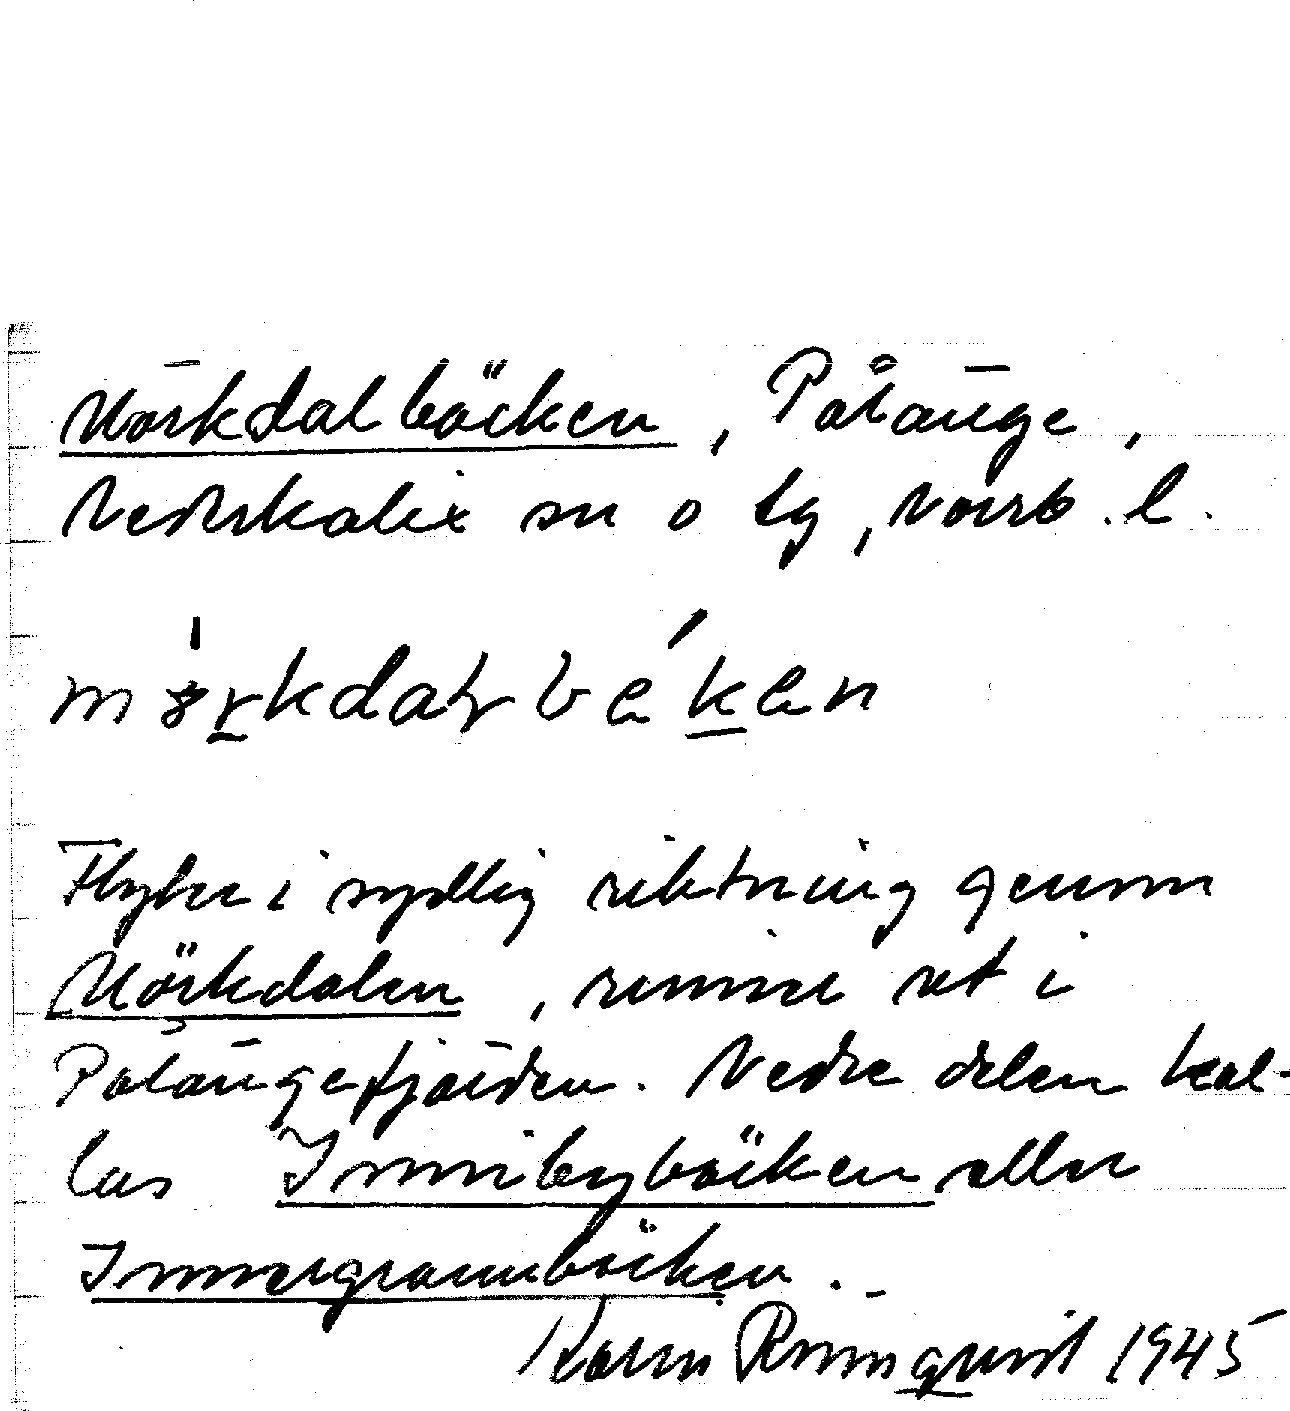 Mörkdalbäcken, Pålänge,
Nederkalix sn o tg, Norrb. l.
Flyter i sydlig riktning genom
Mörkdalen, rinner ut i
Pålängefjärden. Nedre delen kal-
las Innibybäcken eller
Innergrannbäcken.
Karin Rönnquist 1945